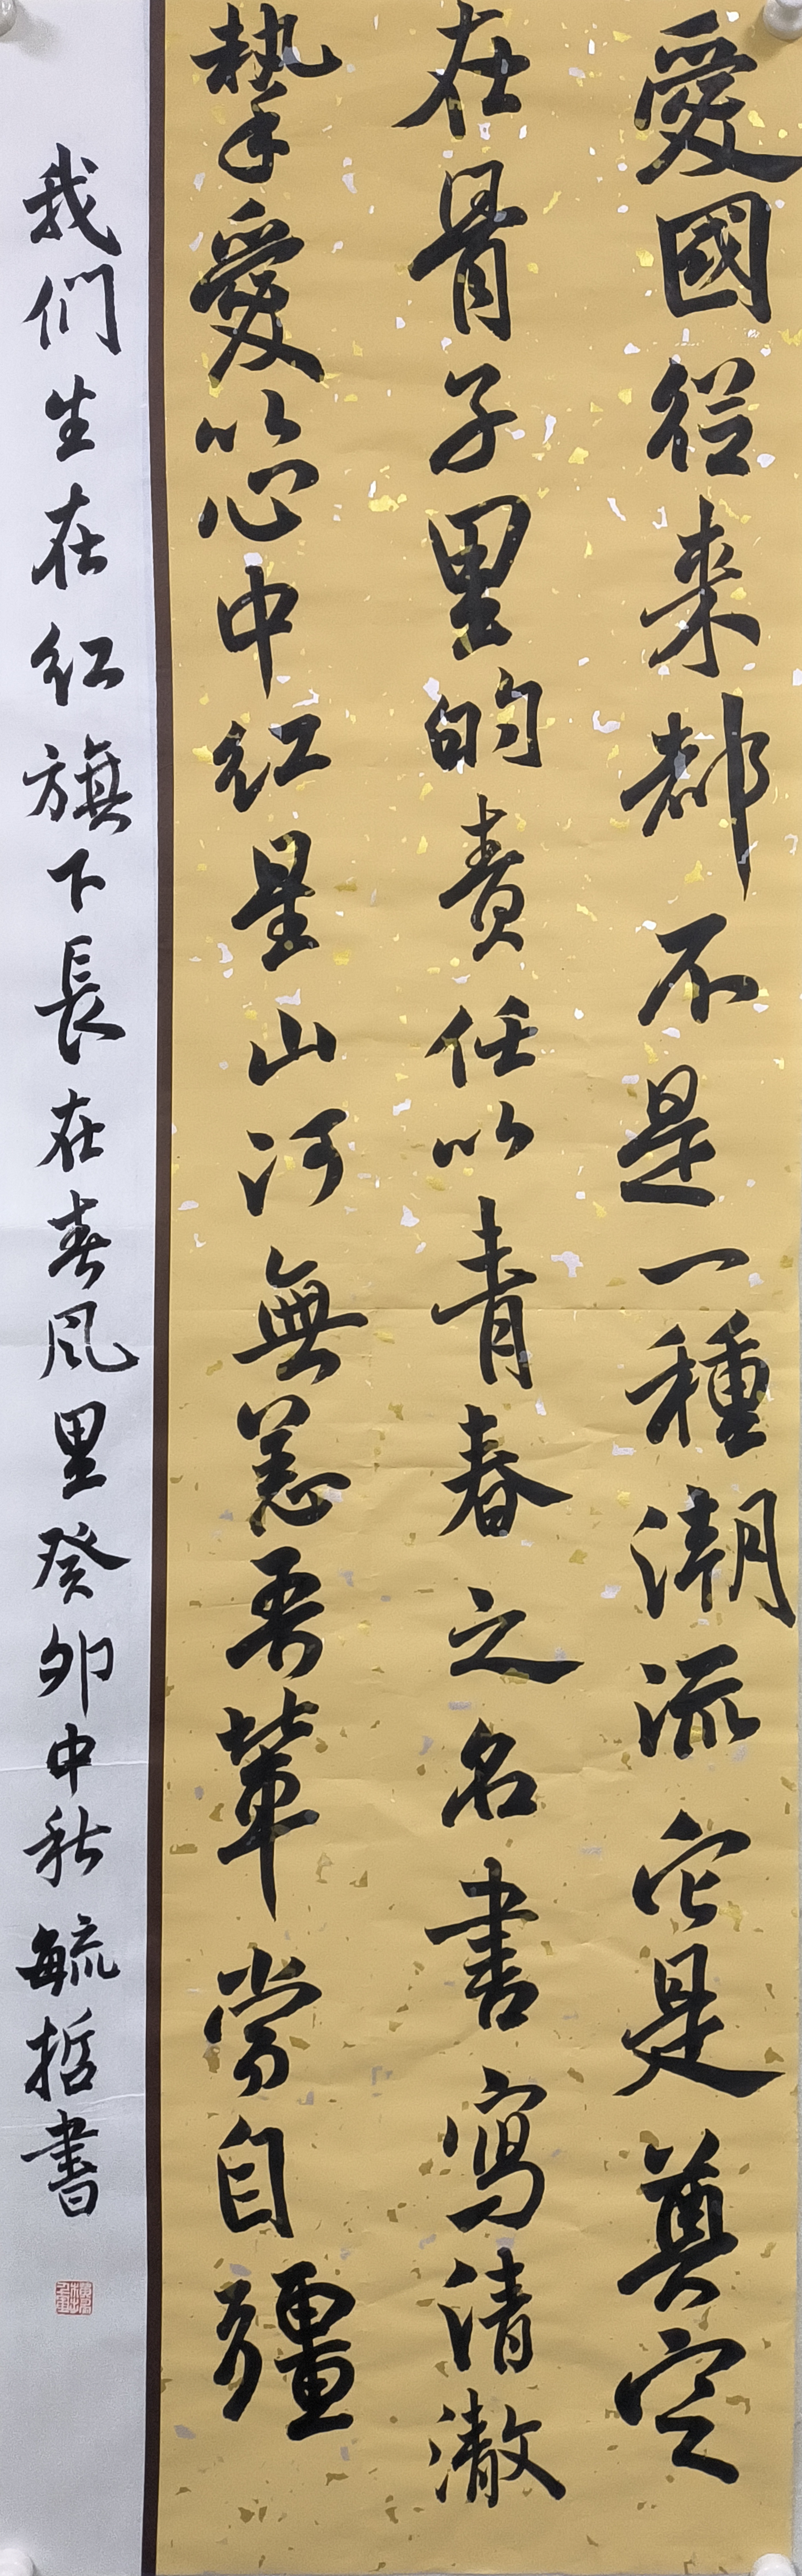 愛國從来都不是一種潮流它是奠定
在骨子里的責任以青春之名書寫清澈
摯愛以心中红星山河無恙吾輩當自疆
我们生在红旗下長在春风里癸卯中秋毓哲書